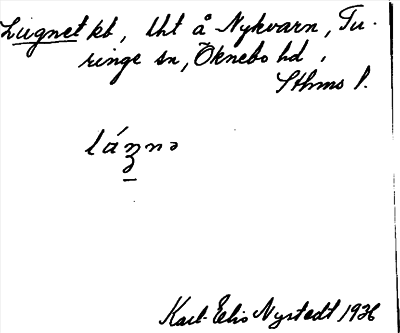 Lugnet kt, lht å Nykvarn, Tu-
ringe sn, Öknebo hd,
Sthms l.
láʒnə
Karl-Eric Nystedt 1936